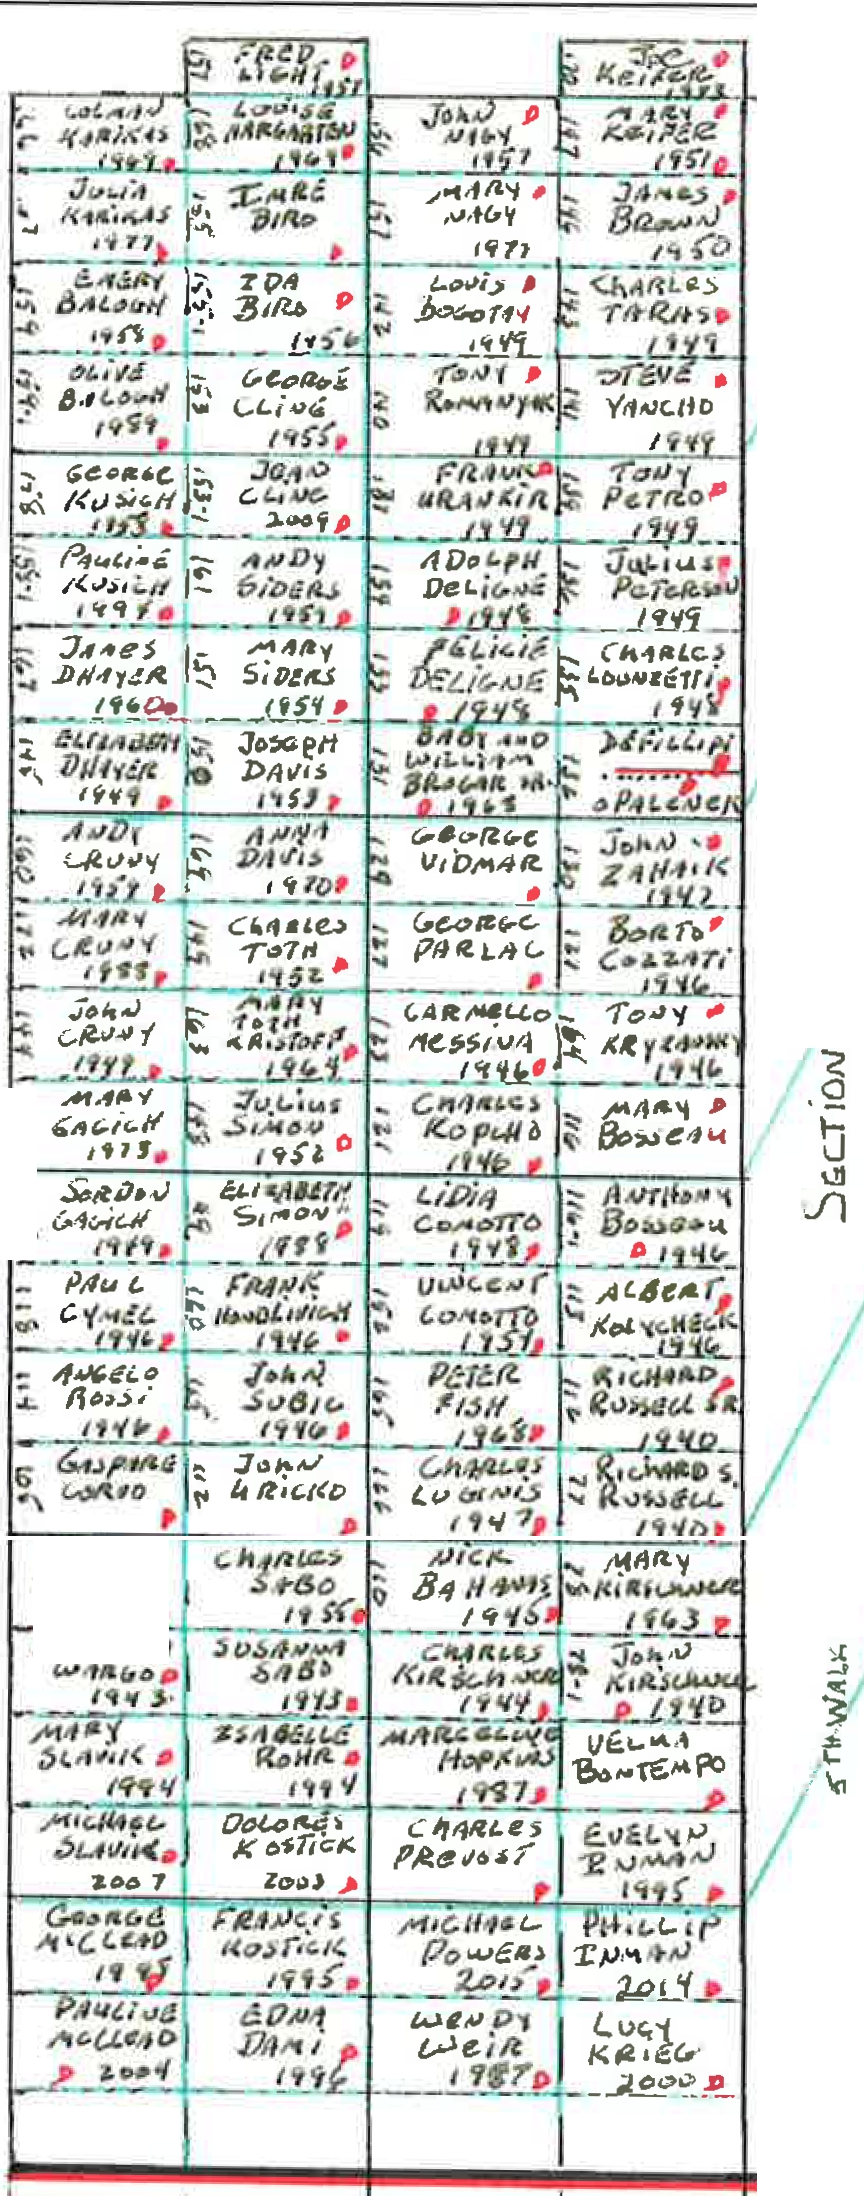 157
FRED
LIGHT
1957
JOE
KEIFER
1953
COLMAN
KARIKAS
1969
LOUISE
MARGARTEN
1969
JOHN
NAGY
1957
147
MARY
KEIFER
1951
JULIA
KARIKAS
1977
155
IMRE
BIRO
151
MARY
NAGY
1977
146
JAMES
BROWN
1950
154
EMERY
BALOGH
1958
155-1
IDA
BIRO
1956
142
LOUIS
BOGOTAY
1949
143
CHARLES
TARAS
1949
154-1
OLIVE
BALOGH
1989
153
GEORGE
CLING
1955
140
TONY
ROMANYAK
1949
141
STEVE
YANCHO
1949
GEORGE
KUSICH
1958
153-1
JEAN
CLING
2009
FRANK
URANKIR
1949
139
TONY
PETRO
1949
PAULINE
KUSICH
1997
161
ANDY
SIDERS
1959
ADOLPH
DELIGNE
1948
JULIUS
PETERSON
1949
167
JAMES
DHAYER
1960
151
MARY
SIDERS
1954
133
FELICIE
DELIGNE
1948
135
CHARLES
LOUNZETTI
1948
145
ELIZABETH
DHAYER
1949
150
JOSEPH
DAVIS
1953
131
BABY AND
WILLIAM
BROGAR JR.
1963
DEFILLIPI
OPALENCK
160
ANDY
CRUNY
1959
165
ANNA
DAVIS
1970
129
GEORGE
VIDMAR
130
JOHN
ZAHAIK
1947
172
MARY
CRUNY
1988
149
CHARLES
TOTH
1952
127
GEORGE
PARLAC
BORTO
COZZATI
1946
144
JOHN
CRUNY
1949
163
MARY
TOTH
KRISTOFF
1964
123
CARMELLO
MESSINA
1946
164
TONY
1946
MARY
GAGICH
1973
148
JULIUS
SIMON
1952
121
CHARLES
KOPCHO
1946
116
MARY
BOSSEAU
GORDON
GAGICH
1949
ELIZABETH
SIMON
1988
119
LIDIA
COMOTTO
1948
116-1
ANTHONY
BOSSEAU
1946
118
PAUL
CYMEL
1946
FRANK
1946
VINCENT
COMOTTO
1951
113
ALBERT
KOLYCHECK
1946
114
ANGELO
ROSSI
1946
JOHN
SUBIC
1946
PETER
FISH
1968
112
RICHARD
RUSSELL SR.
1940
GASPARE
CORAO
112
JOHN
URICKO
CHARLES
LUGINIS
1947
77
RICHARD S.
RUSSELL
1940
CHARLES
SABO
1955
110
NICK
BAHAMS
1945
MARY
KIRSCHNER
1963
WARGO
1943
SUSANNA
SABO
1943
CHARLES
KIRSCHNER
1944
JOHN
KIRSCHNER
1940
MARY
SLAVIK
1994
ISABELLE
ROHR
1994
MARCELLINE
HOPKINS
1987
VELMA
BONTEMPO
MICHAEL
SLAVIK
2007
DOLORES
KOSTICK
2003
CHARLES
PREVOST
EVELYN
INMAN
1995
GEORGE
MCCLEAD
FRANCIS
KOSTICK
1995
MICHAEL
POWERS
2015
PHILLIP
INMAN
2014
PAULINE
MCCLEAD
2004
EDNA
DAMI
1996
WENDY
WEIR
1987
LUCY
KRIEG
2000
SECTION
5TH WALK